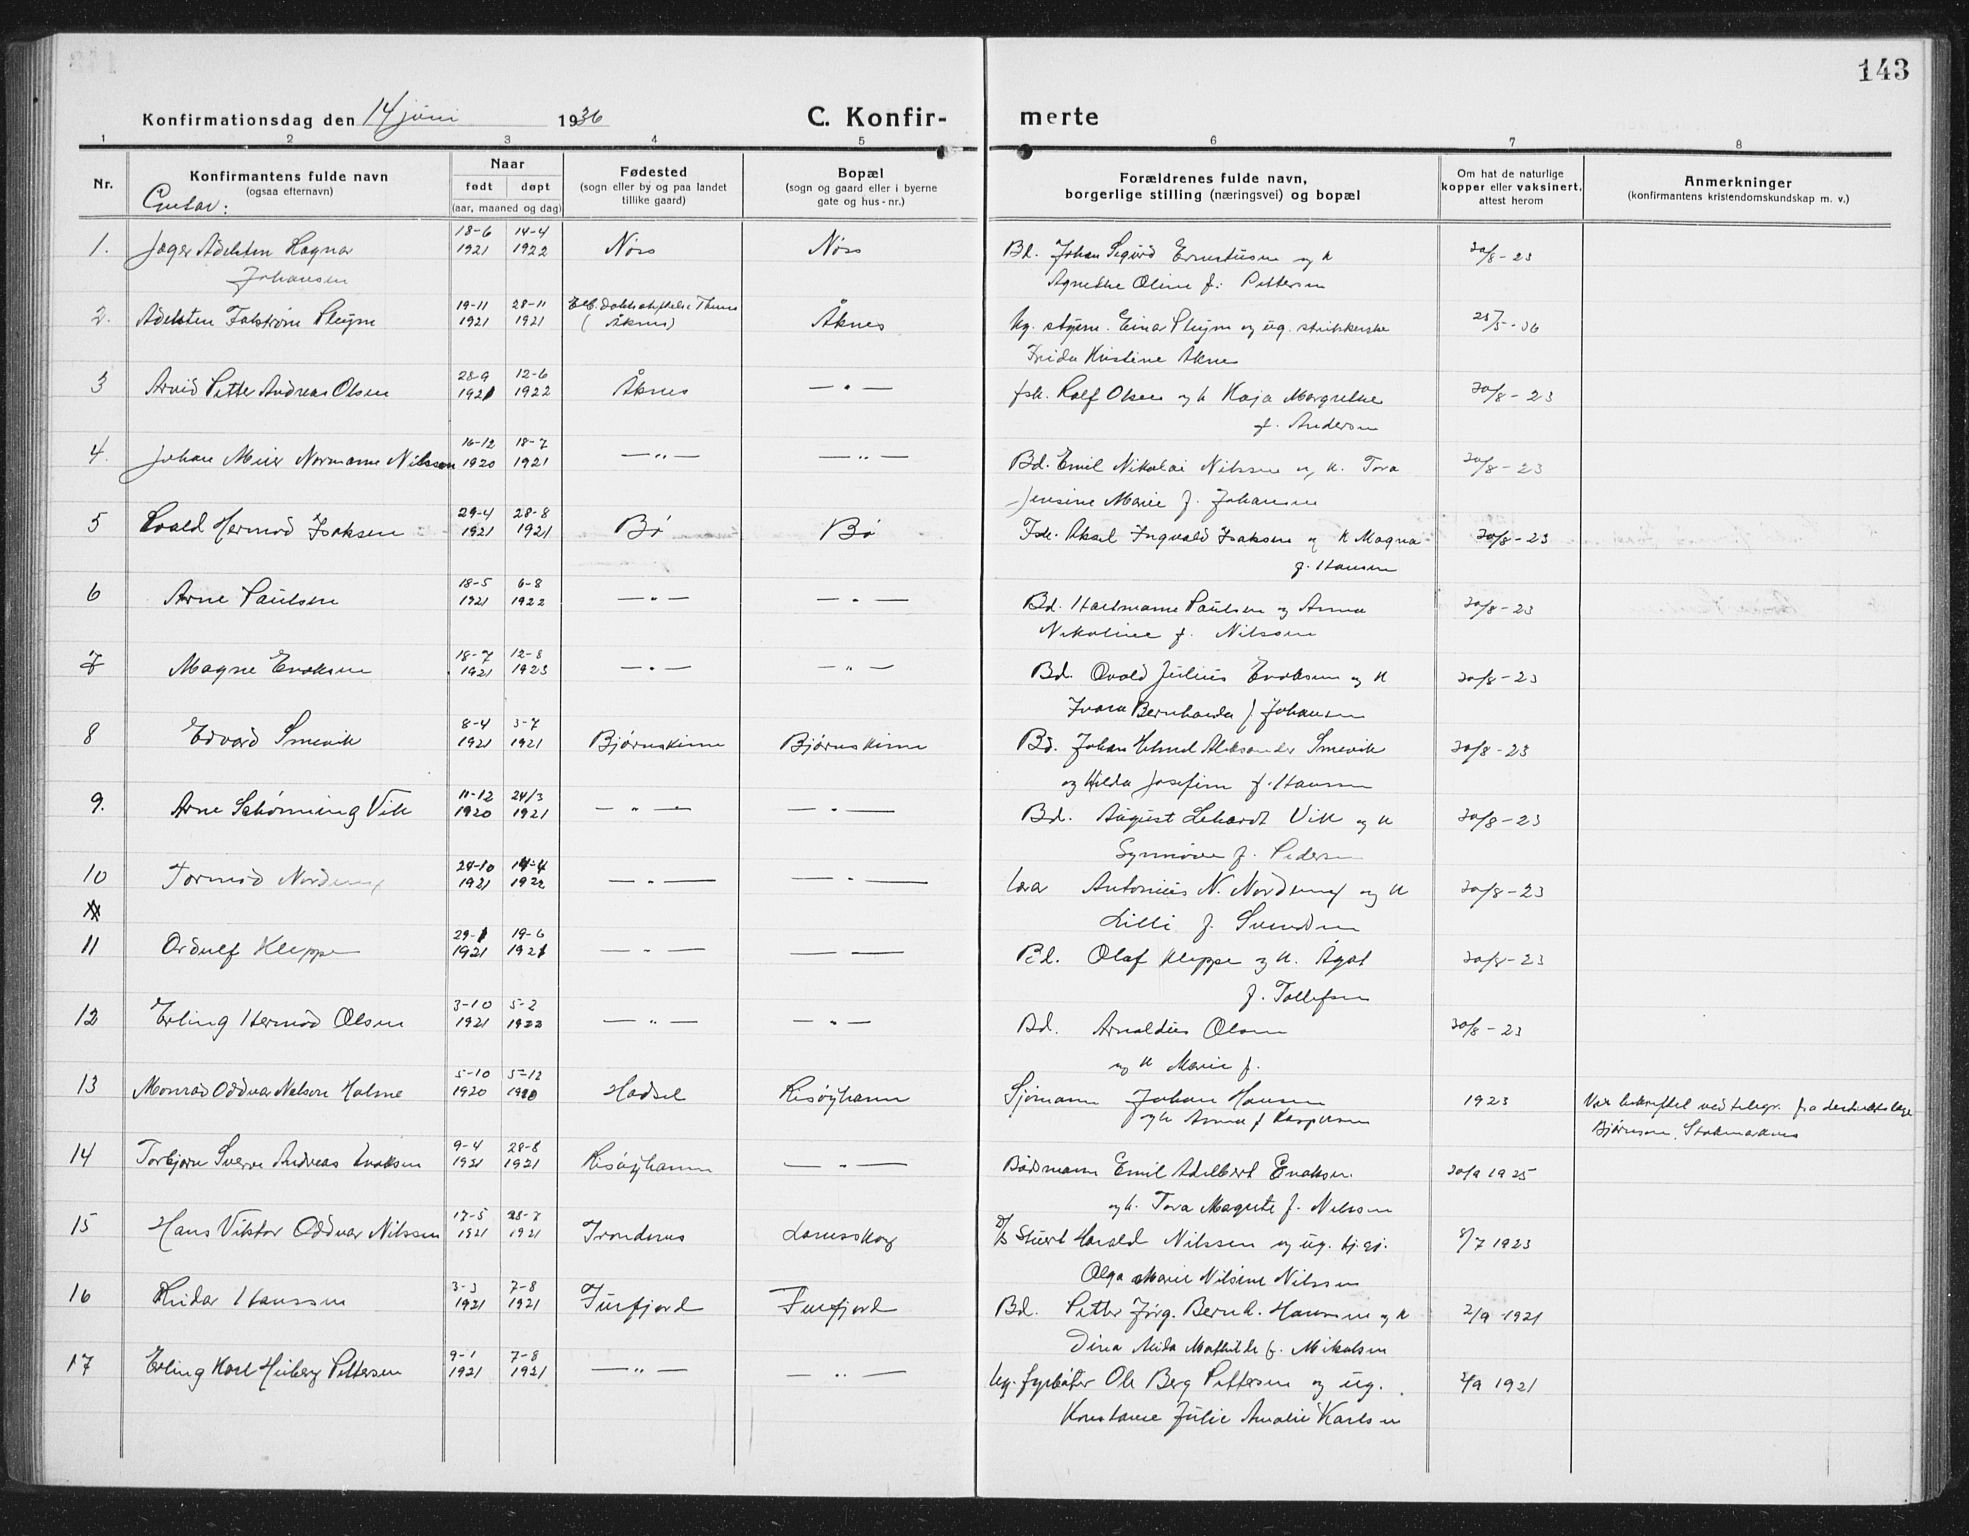 143
Konfirmationsdag den 14 juni 1936
C. Konfir-
merte
1 2 3 4 5 6 7 8
Nr.
Konfirmantens fulde navn
(ogsaa efternavn)
Naar
født døpt
(aar, maaned og dag)
Fødested
(sogn eller by og paa landet
tillike gaard)
Bopæl
(sogn og gaard eller i byerne
gate og hus-nr.)
Forældrenes fulde navn,
borgerlige stilling (næringsvei) og bopæl
Om hat de naturlige
kopper eller vaksinert,
attest herom
Anmerkninger
(konfirmantens kristendomskundskap m. v.)
Gutar:
18-6 14-4
1. Jæger Adelsten Hagnar 1921 1922 Nøss Nøss Bd. Johan Sigurd Ernstusen og k 30/8-23
Johansen Agnethe Oline f. Pettersen
19-11 28-11
2. Adelsten Falstrøm Pleym 1921 1921 (Åknes) Åknes Ug. styrm. Einar Pleym og ug. strikkerske 25/5-36
Frida Kristine Åknes
28-9 12-6
3 Arvid Petter Andreas Olsen 1921 1922 Åknes — " — fsk. Rolf Olsen og k Kaja Margrethe 30/8-23
f. Andersen
16-12 18-7
4. Johan Meier Normann Nilssen 1920 1921 — " — — " — Bd. Emil Nikolai Nilssen og k. Tora 30/8-23
Jensine Marie f. Johansen
29-4 28-8
5 Evald Hermod Isaksen 1921 1921 Bø Bø Fsk. Aksel Ingvald Isaksen og k Magna 30/8-23
f. Hansen
18-5 6-8
6 Arne Paulsen 1921 1922 — " — — " — Bd. Hartmann Paulsen og Anna 30/8-23
Nikoline f. Nilssen
18-7 12-8
7 Magne Enoksen 1921 1923 — " — — " — Bd. Ovald Julius Enoksen og k 30/8-23
Ivara Bernharda f Johansen
8-4 3-7
8 Edvard Smevik 1921 1921 Bjørnskinn Bjørnskinn Bd. Johan Helmel Aleksander Smevik 30/8-23
og Hilda Josefine f. Hansen
11-12 24/3
9. Arne Schønning Vik 1920 1921 — " — — " — Bd. August Lehardt Vik og k 30/8-23
Synnøve f. Pedersen
24-10 14-4
10 Tormod Nordeng 1921 1922 — " — — " — Lærer Antonius N. Nordeng og k 30/8-23
Lilli f. Svendsen
29-1 19-6
11 Ordulf Kleppe 1921 1921 — " — — " — Bd. Olaf Kleppe og k. Ågot 30/8-23
f. Tollefsen
3-10 5-2
12 Erling Hermod Olsen 1921 1922 — " — — " — Bd. Arnoldus Olsen 30/8-23
og k Marie f.
5-10 5-12
13 Monrad Oddvar Nelson Holme 1920 1920 Hadsel Risøyhamn Sjømann Johan Hansen 1923 Vak bekreftet ved telegr. fra destriktslæge
og k Anna f Kaspersen Bjørnson, Stokmarknes
9-4 28-8
14 Torbjørn Sverre Andreas Enoksen 1921 1921 Risøyhamn — " — Bådsmann Emil Adelbert Enoksen 30/9 1925
og k. Tora Magrete f. Nilssen
17-5 28-7
15 Hans Viktor Oddvar Nilssen 1921 1921 Trondenes Lanesskog Stuert Harald Nilssen og ug. 5/7 1923
Olga Marie Nilsine Nilssen
3-3 7-8
16 Reidar Hanssen 1921 1921 Turfjord Turfjord Bd. Petter Jørg. Bernh. Hanssen og k 2/9-1921
Dina Alida Mathilde f. Mikalsen
9-1 7-8
17 Erling Karl Heiberg Pettersen 1921 1921 — " — — " — Ug. fyrbøter Ole Berg Pettersen og ug. 2/9 1921
Konstanse Julie Amalie Karlsen